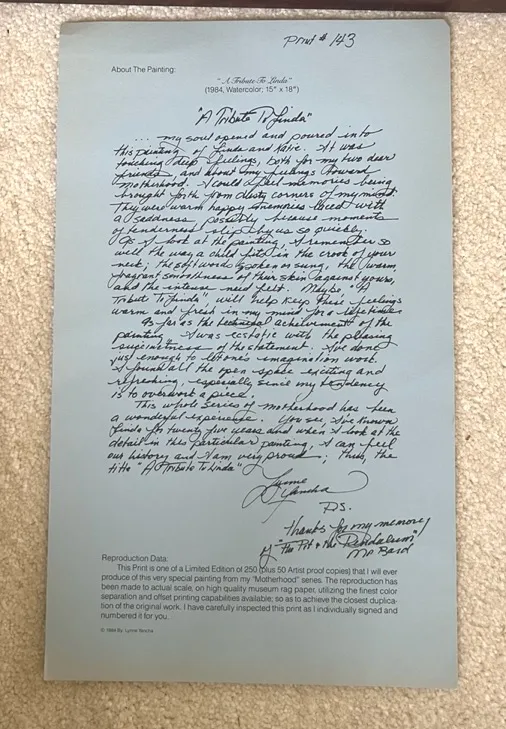 Print # 143
About The Painting:
"A Tribute To Linda"
(1984, Watercolor; 15" x 18")
"A Tribute To Linda"
... my soul opened and poured into
this painting of Linda and Katie. It was
touching deep feelings, both for my two dear
friends, and about my feelings toward
Motherhood. I could feel memories being
brought forth from dusty corners of my mind.
They were warm happy memories laced with
a sadness, possibly because moments
of tenderness slip by us so quickly.
As I look at the painting, I remember so
well the way a child fits in the crook of your
neck; the soft words spoken or sung, the warm,
fragrant smoothness of their skin against yours,
and the intense need felt. Maybe "A
Tribute To Linda", will help keep these feelings
warm and fresh in my mind for a lifetime.
As far as the technical achievement of the
painting I was ecstatic with the pleasing
succinctness of the statement. I've done
just enough to let one's imagination work.
I found all the open space exciting and
refreshing, especially since my tendency
is to overwork a piece.
This whole series of motherhood has been
a wonderful experience. You see, I've known
Linda for twenty five years and when I look at the
detail in this particular painting, I can feel
our history and I am very proud; thus, the
title "A Tribute To Linda"
Lynne
Yancha
P.S.
Thanks for my memory
of "The Pit & the Pendulum"
Mr Bard
Reproduction Data:
This Print is one of a Limited Edition of 250 (plus 50 Artist proof copies) that I will ever
produce of this very special painting from my "Motherhood" series. The reproduction has
been made to actual scale, on high quality museum rag paper, utilizing the finest color
separation and offset printing capabilities available; so as to achieve the closest duplica-
tion of the original work. I have carefully inspected this print as I individually signed and
numbered it for you.
By: Lynne Yancha